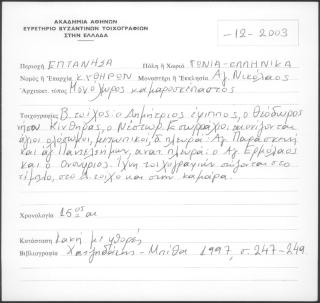 ΑΚΑΔΗΜΙΑ ΑΘΗΝΩΝ
ΕΥΡΕΤΗΡΙΟ ΒΥΖΑΝΤΙΝΩΝ ΤΟΙΧΟΓΡΑΦΙΩΝ
ΣΤΗΝ ΕΛΛΑΔΑ
-12-2003
Περιοχή ΕΠΤΑΝΗΣΑ Πόλη ή Χωριό ΓΩΝΙΑ-ΕΛΛΗΝΙΚΑ
Νομός ή Ἐπαρχία ΚΥΘΗΡΩΝ Μοναστήρι ἤ Ἐκκλησία Αγ. Νικόλαος
Ἀρχιτεκτ. τύπος Μονόχωρος καμαροσκέπαστος
Τοιχογραφίες Β. τοίχος: ο Δημήτριος έφιππος, ο Θεόδωρος
Κυθήρας, ο Νέστωρ.
άγιοι ολόσωμοι, μετωπικοί, δ. πλευρά: Αγ. Παρασκευή
και άγ. Παντελεήμων, ανατ. πλευρά: ο Αγ. Ερμόλαος
και ο Ονούφριος. Ίχνη τοιχογραφιών σώζονται στο
τέμπλο, στο Δ. τοίχο και στην καμάρα.
Χρονολογία 15ος αι.
Κατάσταση Κακή με φθορές
Βιβλιογραφία Χατζηδάκης - Μπίθα 1997, σ. 247-249